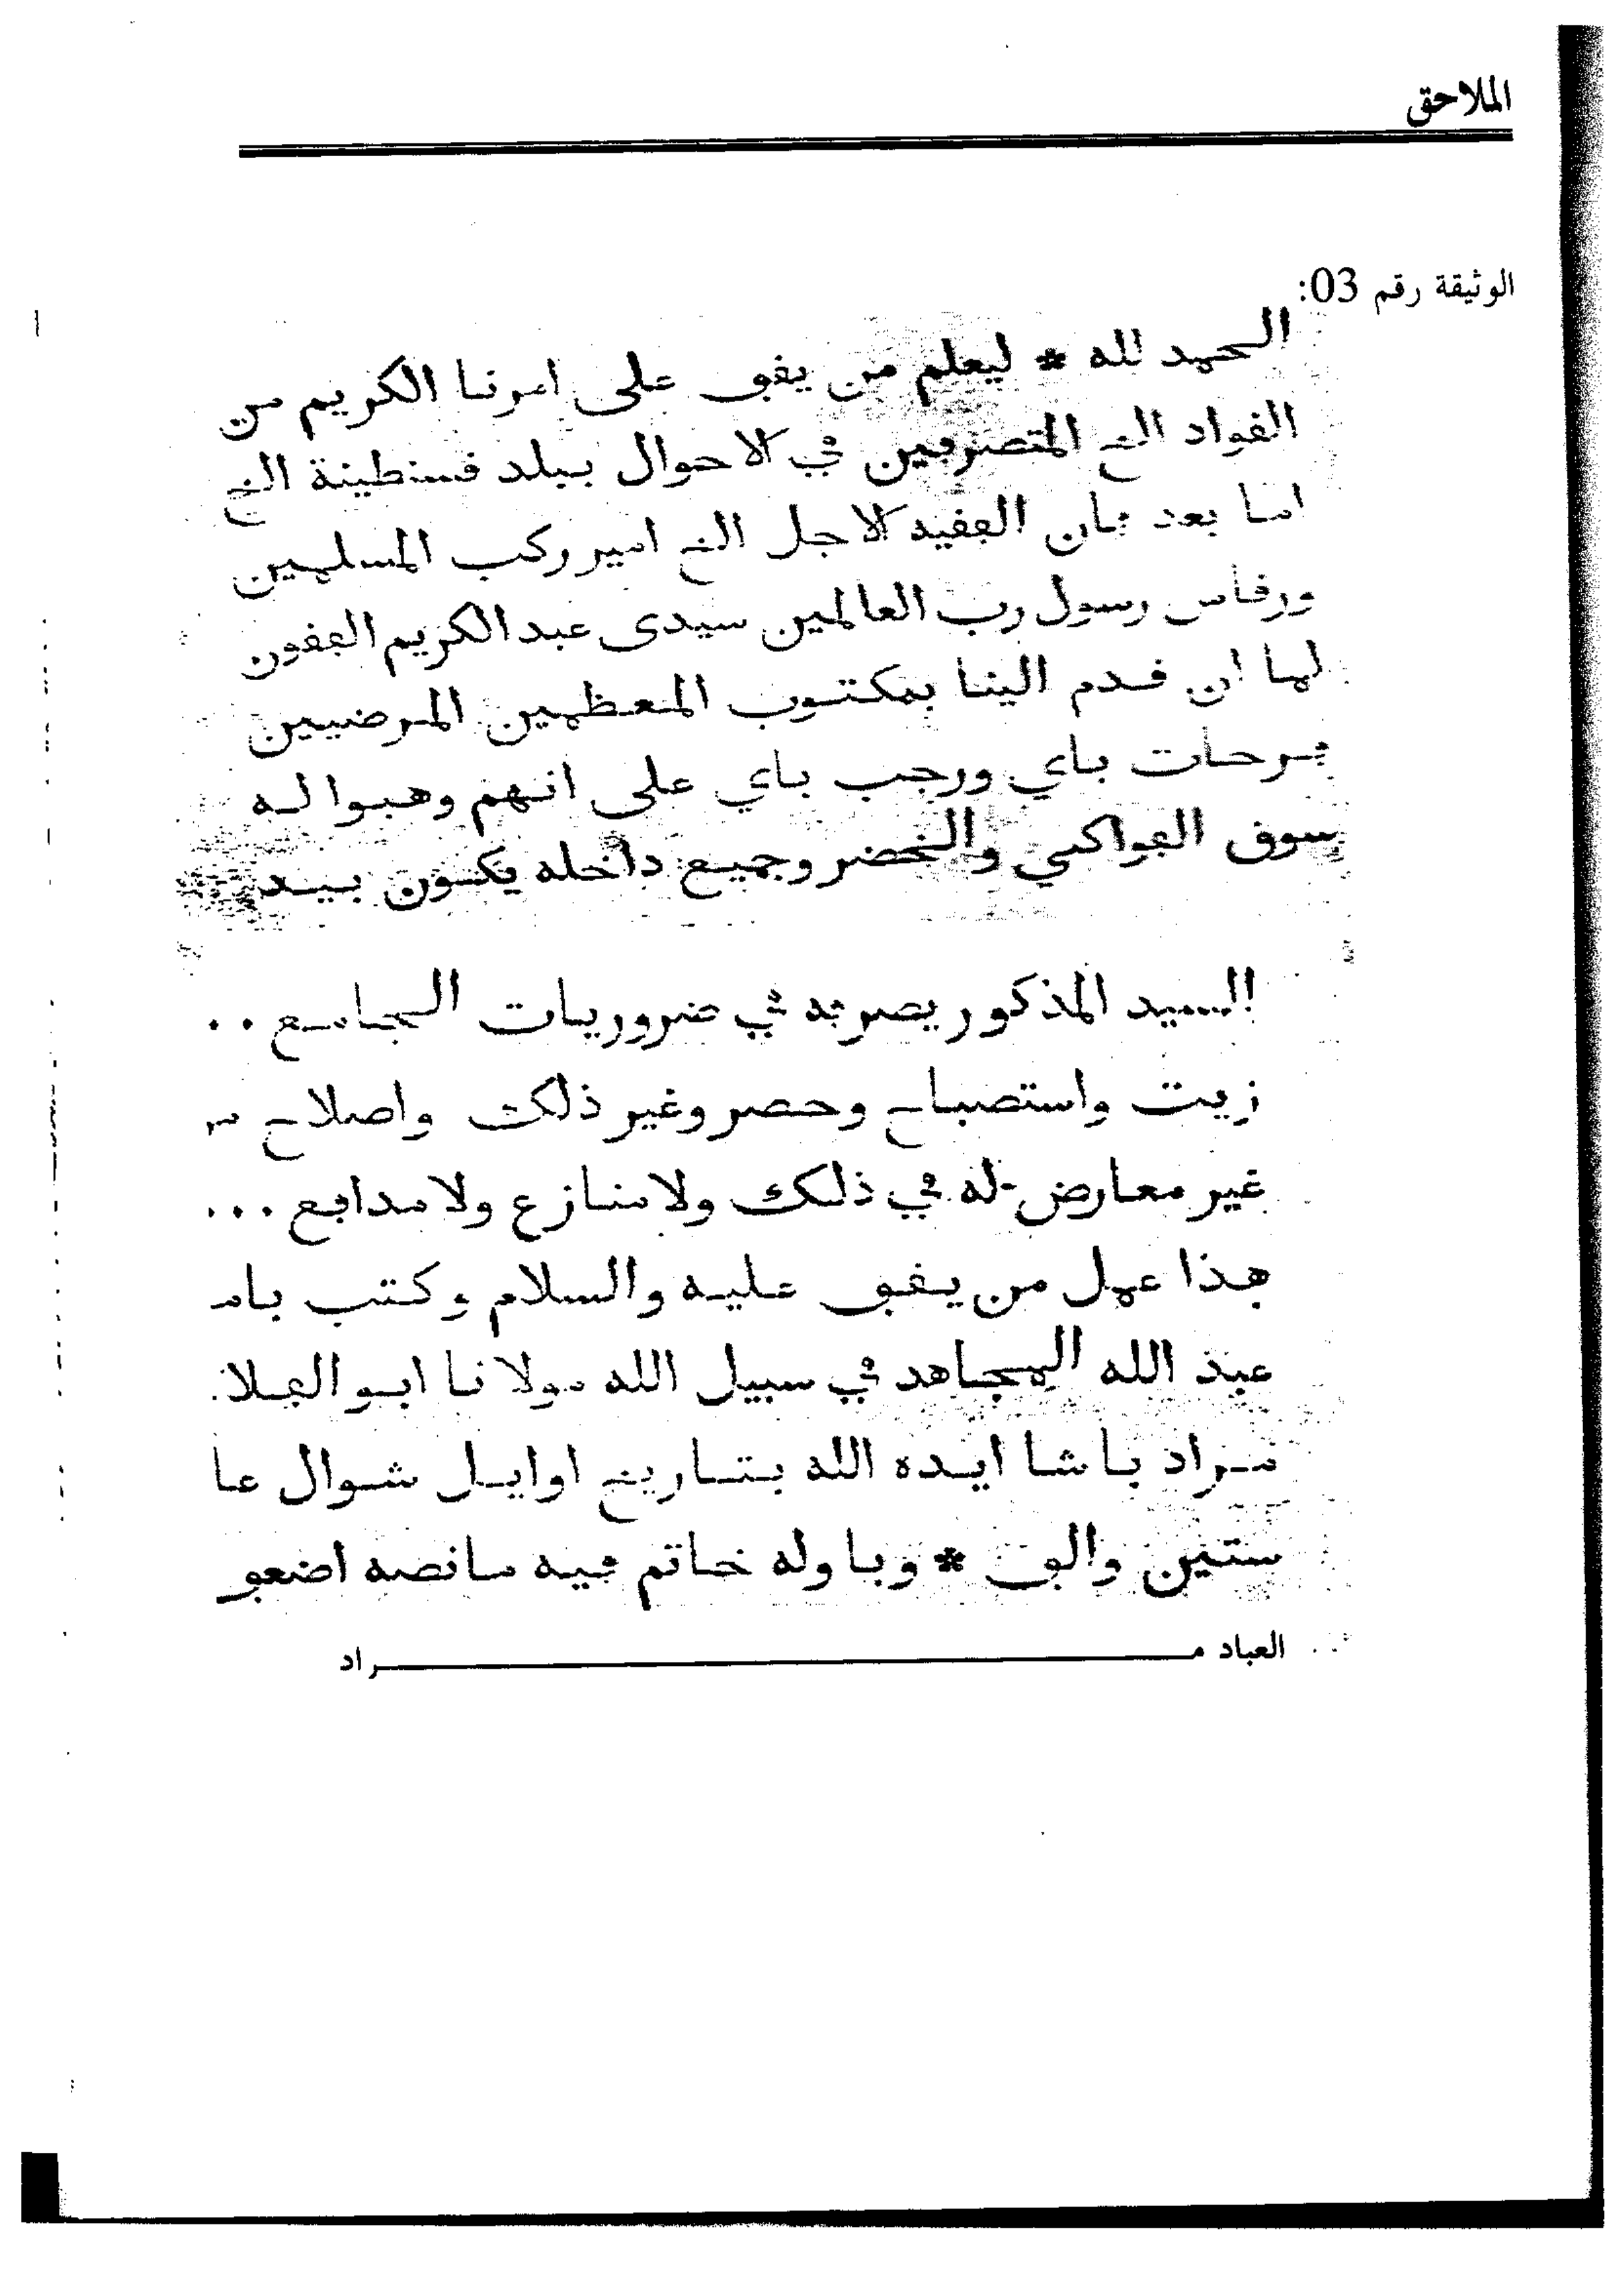 الملاحق
الوثيقة رقم 03:
الحمد لله * ليعلم من يقف على امرنا الكريم من
القواد الخ المتصرفين في الاحوال ببلد قسنطينة الخ
اما بعد فان الفقيه الاجل الخ امير ركب المسلمين
ورقاس رسول رب العالمين سيدى عبد الكريم الفقون
لما ان قدم الينا بمكتوب المعظمين المرضيين
فرحات باي ورجب باي على انهم وهبوا له
سوق الفواكي والخضر وجميع داخله يكون بيد
السيد المذكور يصرفه في ضروريات الجامع ..
زيت واستصباح وحصر وغير ذلك واصلاح
غير معارض له في ذلك ولا منازع ولا مدافع ...
هذا عمل من يقف عليه والسلام وكتب بامر
عبد الله المجاهد في سبيل الله مولانا ابو الجلا
مراد باشا ايده الله بتاريخ اوايل شوال عا
ستين والف * وباوله خاتم فيه ما نصه اضعف
العباد مـــــراد